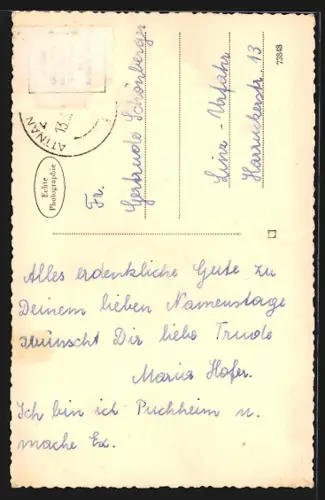 Alles erdenkliche Gute zu
Deinem lieben Namenstage
wünscht Dir liebe Trude
Maria Hofer.
Ich bin ich Puchheim u.
mache Ex.
Fr.
Gertrude Schönberger
Linz - Urfahr
Harruckerstr. 13
Echte
Photographie
73848
13.